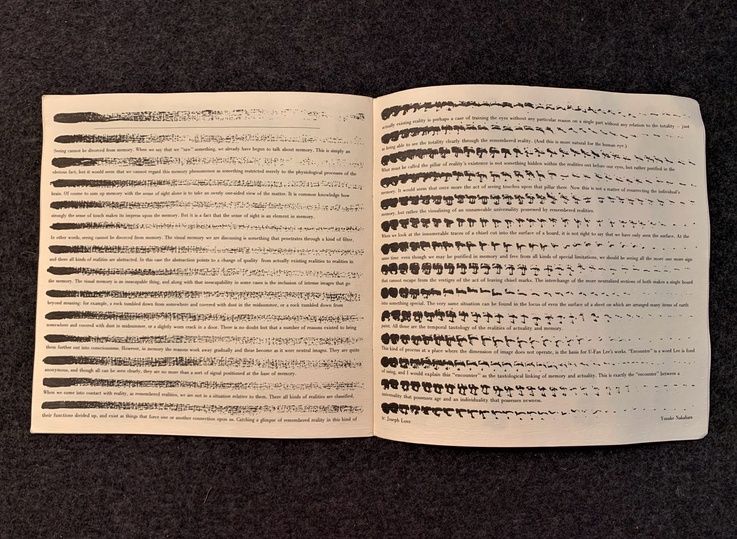 Seeing cannot be divorced from memory. When we say that we "see" something, we already have begun to talk about memory. This is simply an
obvious fact, but it would seem that we cannot regard this memory phenomenon as something restricted merely to the physiological processes of the
brain. Of course to sum up memory with the sense of sight alone is to take an overly one-sided view of the matter. It is common knowledge how
strongly the sense of touch makes its impress upon the memory. But it is a fact that the sense of sight is an element in memory.
In other words, seeing cannot be divorced from memory. The visual memory we are discussing is something that penetrates through a kind of filter.
and there all kinds of realities are abstracted. In this case the abstraction points to a change of quality from actually existing realities to realities in
the memory. The visual memory is an inescapable thing, and along with that inescapability in some cases is the inclusion of intense images that go
beyond meaning: for example, a rock tumbled down from somewhere and covered with dust in the midsummer, or a rock tumbled down from
somewhere and covered with dust in midsummer, or a slightly worn track in a door. There is no doubt but that a number of reasons existed to bring
them further out into consciousness. However, in memory the reasons work away gradually and these become as it were neutral images. They are quite
anonymous, and though all can be seen clearly, they are no more than a sort of signal positioned at the base of memory.
When we come into contact with reality, as remembered realities, we are not in a situation relative to them. There all kinds of realities are classified,
their functions divided up, and exist as things that force one or another connection upon us. Catching a glimpse of remembered reality in this kind of
actually existing reality is perhaps a case of training the eyes without any particular reason on a single part without any relation to the totality — just
as being able to see the totality clearly through the remembered reality. (And this is more natural for the human eye.)
What must be called the pillar of reality's existence is not something hidden within the realities set before our eyes, but rather purified in the
memory. It would seem that once more the act of seeing touches upon that pillar there. Now this is not a matter of connecting the individual's
memory, but rather the visualizing of an unnameable universality possessed by remembered realities.
When we look at the innumerable traces of a chisel cut into the surface of a board, it is not right to say that we have only seen the surface. At the
same time even though we may be purified in memory and free from all kinds of special limitations, we should be seeing all the more one more sign
that cannot escape from the vestiges of the act of leaving chisel marks. The interchange of the more neutralized senses of both makes a single board
into something special. The very same situation can be found in the locus of even the surface of a sheet on which are arranged many items of earth.
paint. All these are the temporal tautology of the realities of actuality and memory.
This kind of process at a place where the dimension of image does not operate, is the basis for U-Fan Lee's works. "Encounter" is a word Lee is fond
of using, and I would explain this "encounter" as the tautological linking of memory and actuality. This is exactly the "encounter" between a
universality that possesses age and an individuality that possesses newness.
tr: Joseph Love
Yusuke Nakahara